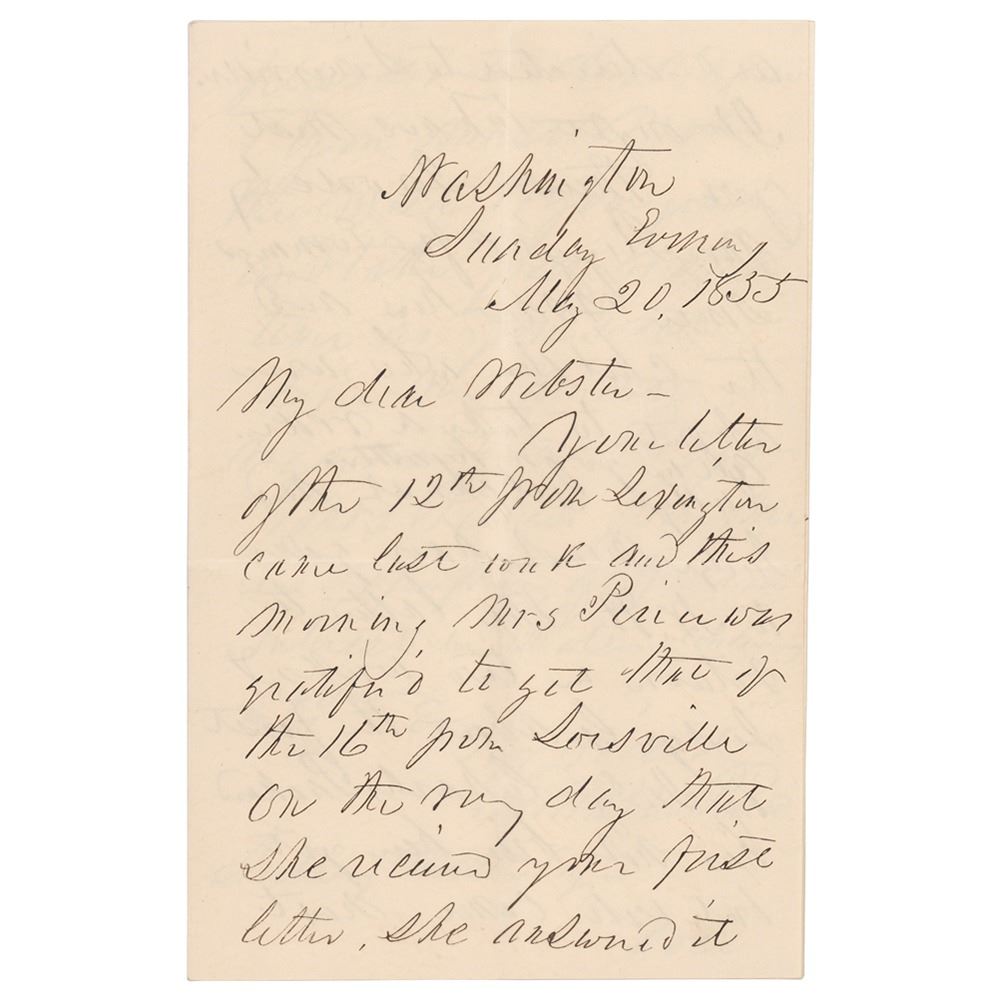 Washington
Sunday Evening
May 20, 1855
My dear Webster –
Your letter
of the 12th from Lexington
came last week and this
morning Mrs Pierce was
gratified to get that of
the 16th from Louisville
on the very day that
she received your first
letter, she answered it